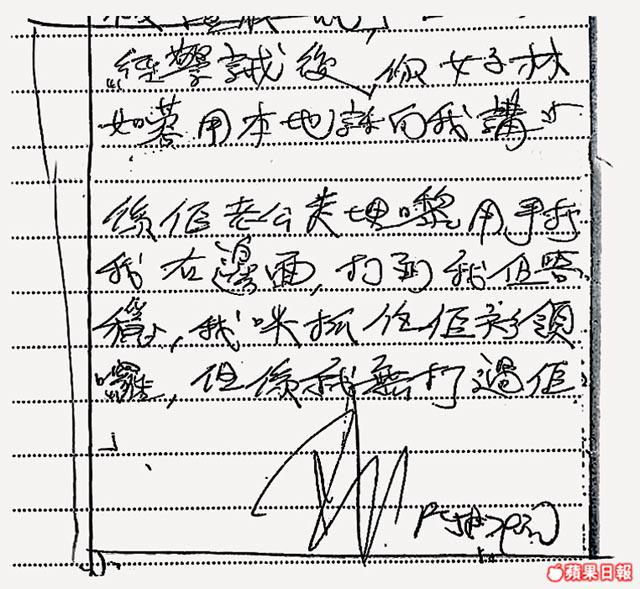 經警誡後，女子林
如用本地話向我講："
係佢老公走埋嚟用手打
我右邊面，打到我企唔
穩，我咪抓住佢衫領
囉，但係我無打過佢.
」
蘋果日報